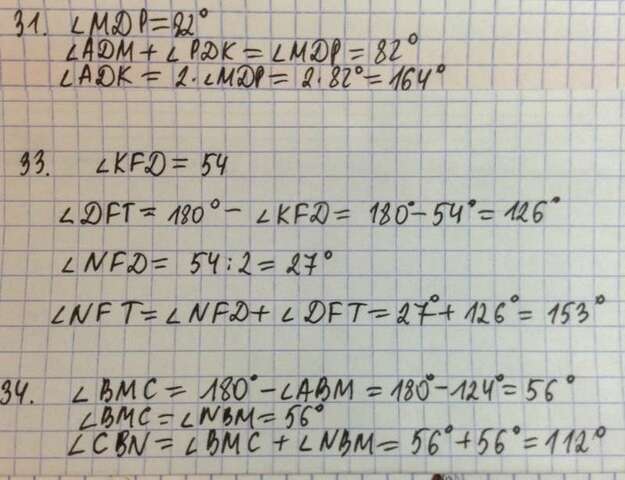 31. ∠MDP=82°
∠ADM + ∠PDK = ∠MDP = 82°
∠ADK = 2·∠MDP = 2·82° = 164°
33. ∠KFD = 54
∠DFT = 180° - ∠KFD = 180° - 54° = 126°
∠NFD = 54 : 2 = 27°
∠NFT = ∠NFD + ∠DFT = 27° + 126° = 153°
34. ∠BMC = 180° - ∠ABM = 180° - 124° = 56°
∠BMC = ∠NBM = 56°
∠CBN = ∠BMC + ∠NBM = 56° + 56° = 112°